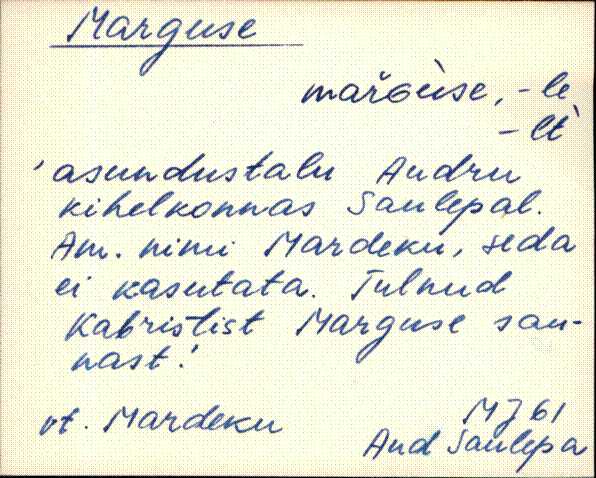 Marguse
marGùse, -le
-lt
'asundustalu Audru
kihelkonnas Saulepal.
Am. nimi Mardeku, seda
ei kasutata. Tulnud
Kabristist Marguse sau-
nast.'
vt. Mardeku
MJ 61
Aud Saulepa